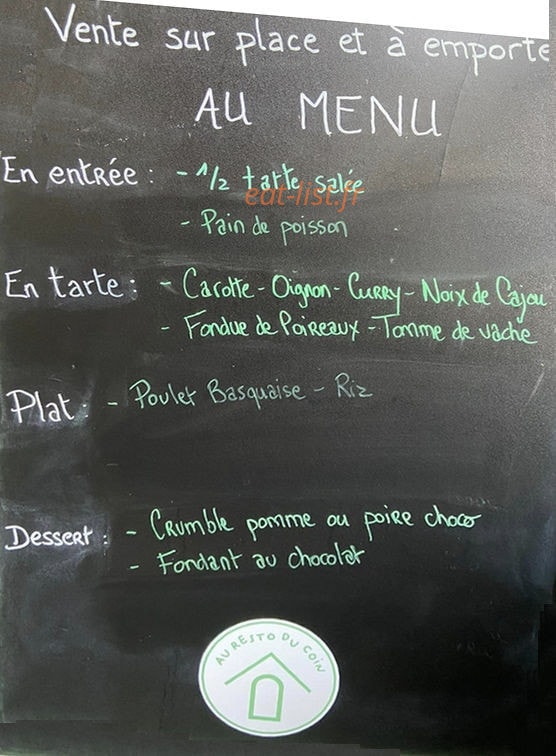 Vente sur place et à emporte
AU MENU
En entrée : - 1/2 tarte salée
eat-list.fr
- Pain de poisson
En tarte : - Carotte - Oignon - Curry - Noix de Cajou
- Fondue de Poireaux - Tomme de vache
Plat : - Poulet Basquaise - Riz
Dessert : - Crumble pomme ou poire choco
- Fondant au chocolat
AU RESTO DU COIN